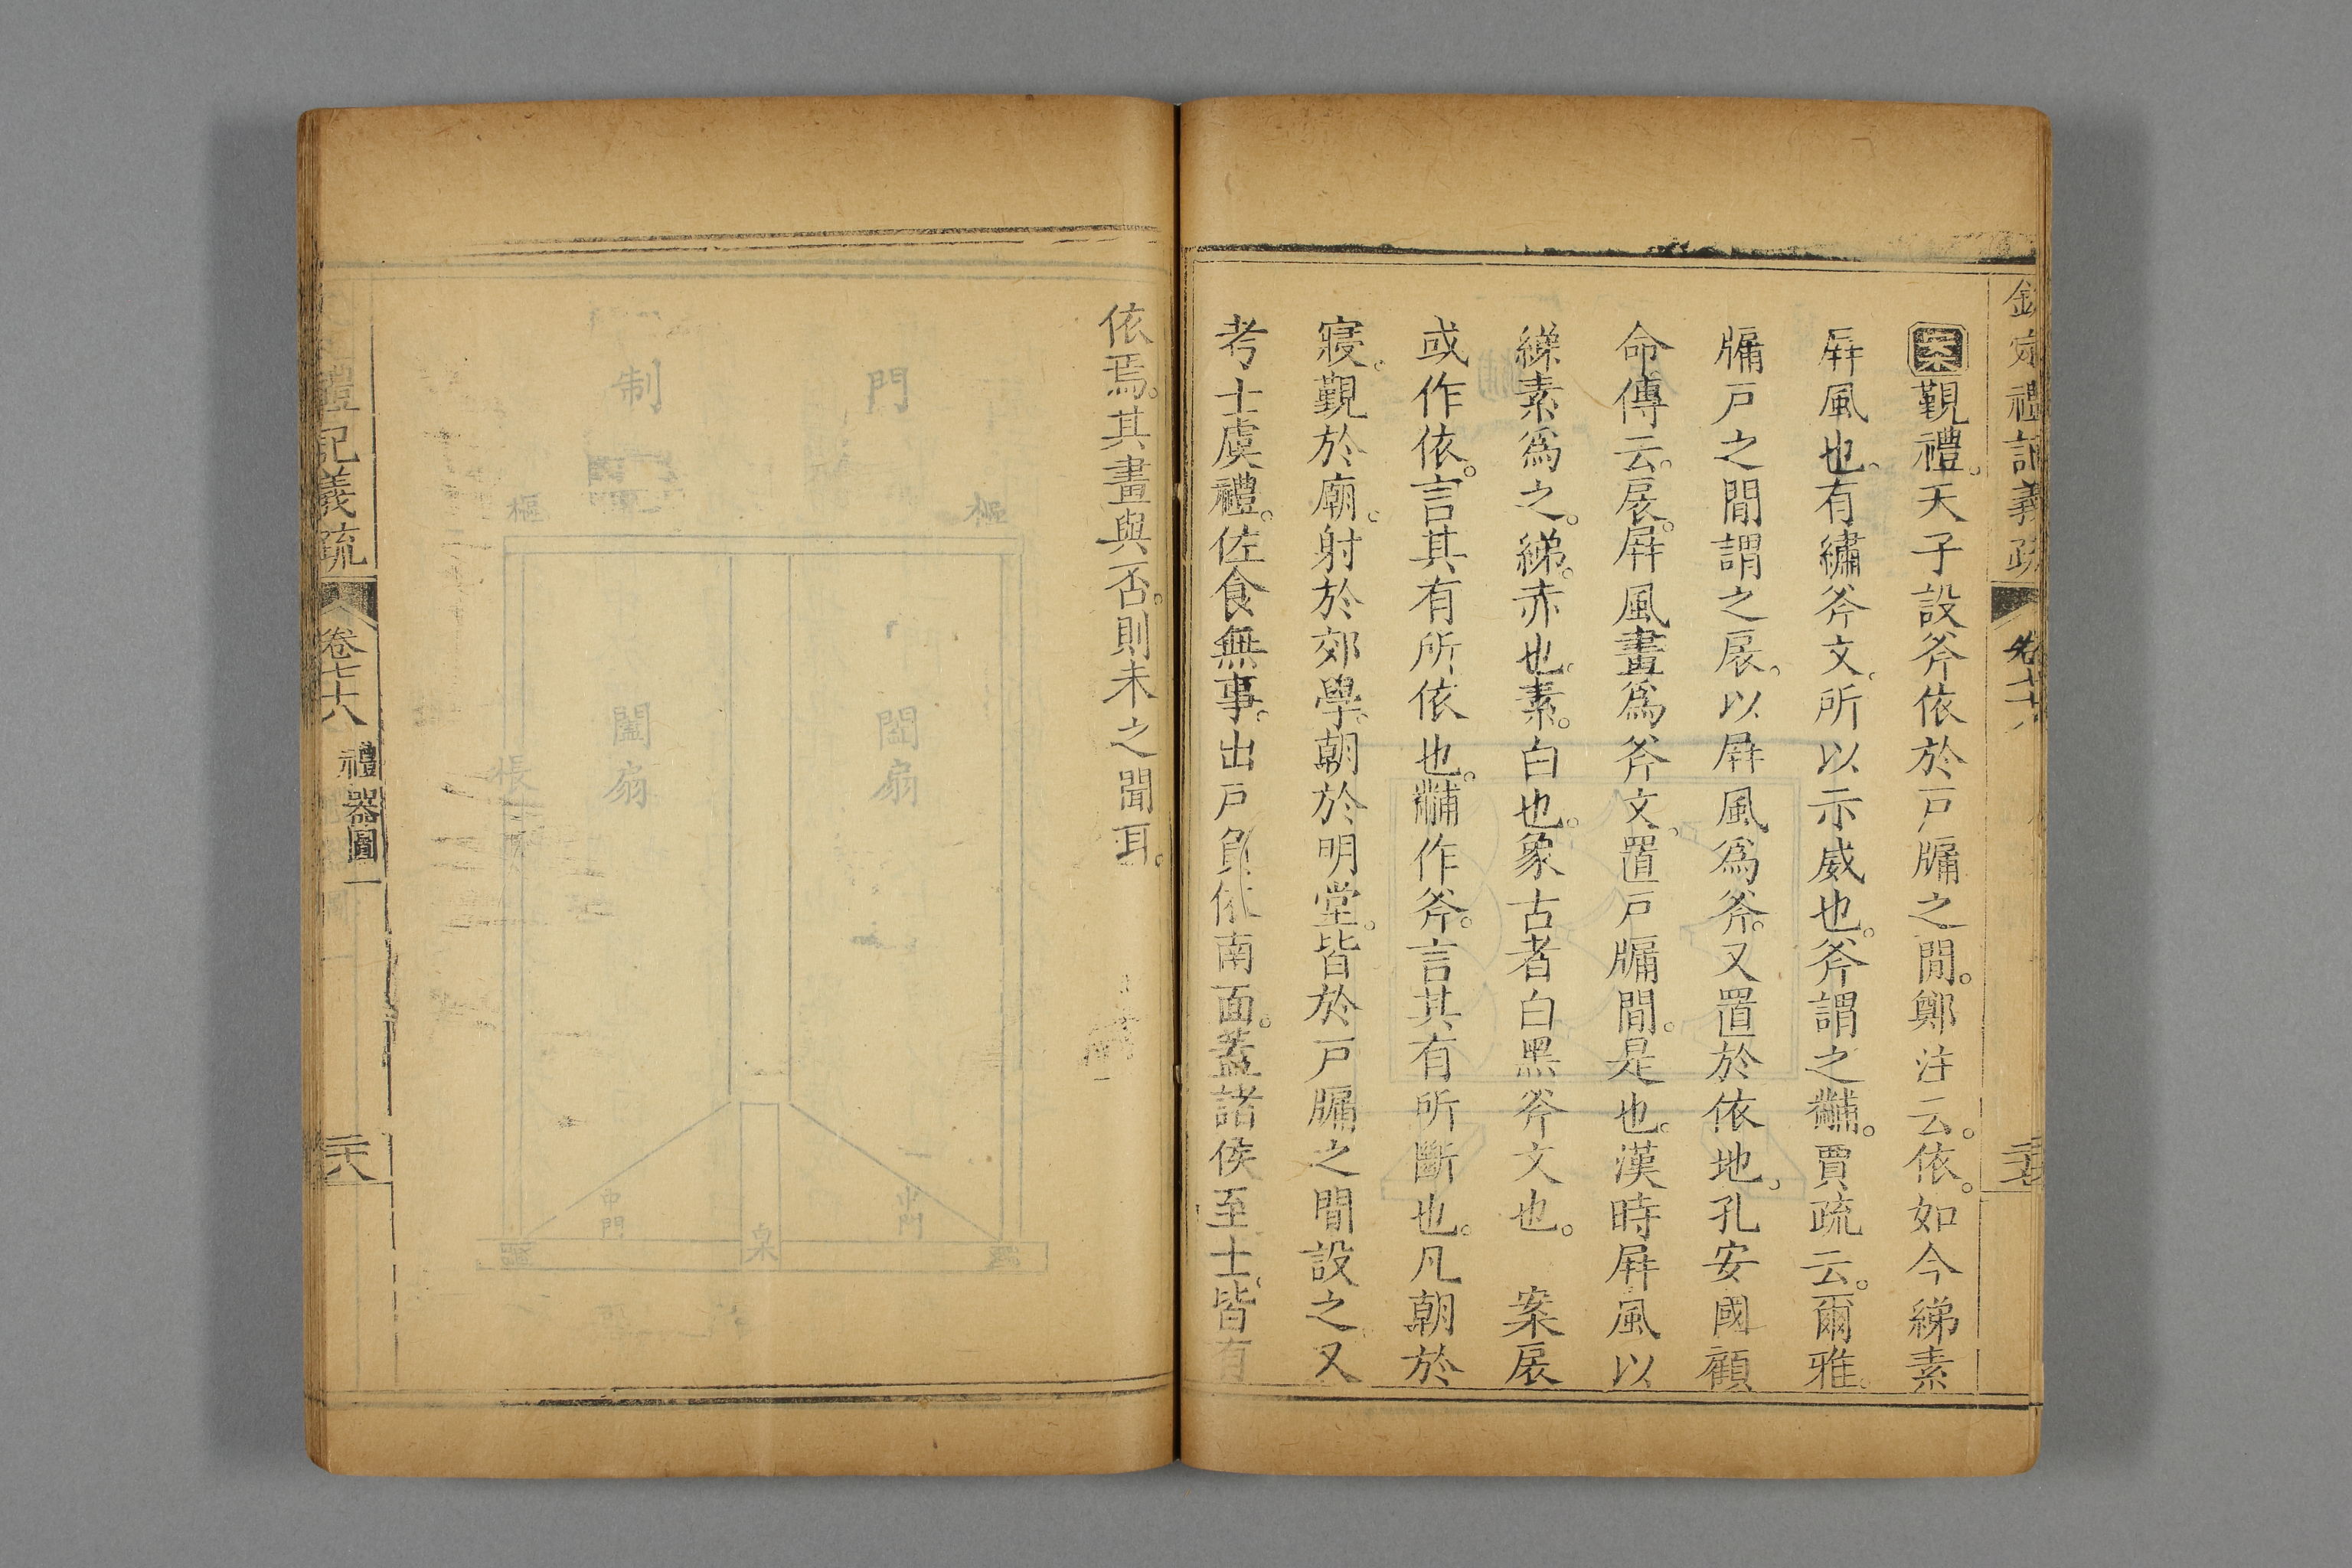 欽定禮記義疏 卷七十八
案覲禮。天子設斧依於戸牖之間。鄭注云。依。如今綈素
屏風也。有繡斧文。所以示威也。斧謂之黼。賈疏云。爾雅。
牖戸之間謂之扆。以屏風爲斧。又置於依地。孔安國顧
命傳云。扆。屏風畫爲斧文。置戸牖間。是也。漢時屏風以
綈素爲之。綈。赤也。素。白也。象古者白黑斧文也。 案扆
或作依。言其有所依也。黼作斧。言其有所斷也。凡朝於
寢。覲於廟。射於郊學。朝於明堂。皆於戸牖之間設之。又
考士虞禮。佐食無事。出戸負依南面。蓋諸侯至士。皆有
依焉。其畫與否。則未之聞耳。
禮記義疏 卷七十八 禮器圖一 二十八
門
制
樞
樞
闔扇
闔扇
棖
中門
中門
臬